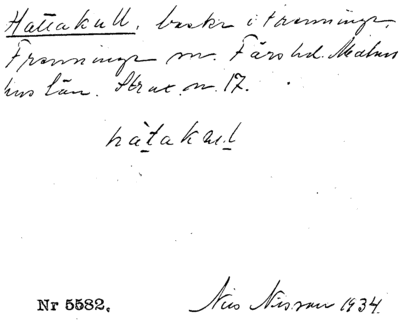 Hattakull, backe i Franninge,
Franninge sn. Färs hd. Malmö
hus län. Strax n. 17.
hàtakul
Nr 5582. Nils Nilsson 1934.